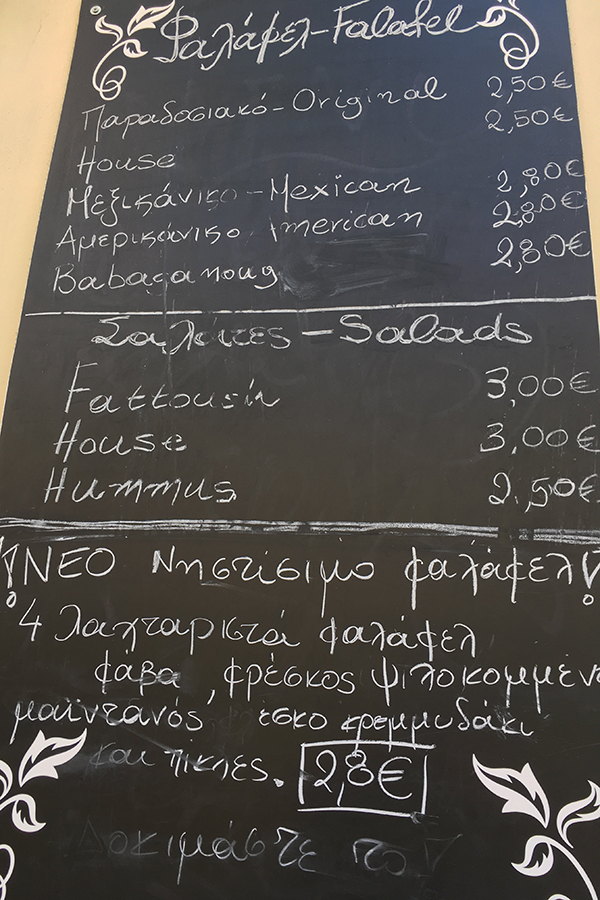 Φαλάφελ-Falafel
Παραδοσιακό-Original 2,50€
House 2,50€
Μεξικάνικο-Mexican 2,80€
Αμερικάνικο American 2,80€
Babaganoug 2,80€
Σαλάτες-Salads
Fattoush 3,00€
House 3,00€
Hummus 2,50€
!ΝΕΟ Νηστίσιμο φαλάφελ!
4 λαχταριστά φαλάφελ
φάβα, φρέσκος ψιλοκομμένο
μαϊντανός εσκο κρεμμυδάκι
και πίκλες. 2,8€
Δοκιμάστε το!